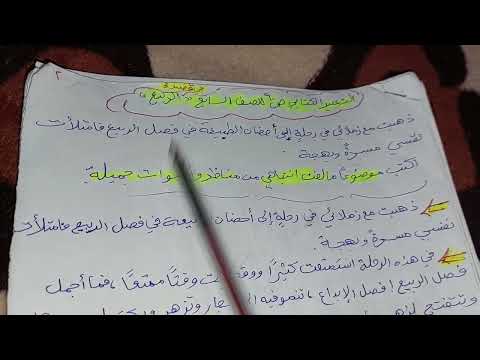 ٢
في قصيدة
التعبير الكتابي ص للصف السابع "الربيع"
ذهبت مع زملائي في رحلة إلى أحضان الطبيعة في فصل الربيع فامتلأت
نفسي مسرةً وبهجة
اكتب موضوعًا ما لفت انتباهي من مناظر و جميلة
ذهبت مع زملائي في رحلة إلى أحضان في فصل الربيع فامتلأت
نفسي مسرةً وبهجة
في هذه الرحلة استمتعت كثيرًا ووقتًا ممتعًا، فما أجمل
فصل الربيع فصل الإبداع، تنمو فيه وتزهر
وتتفتح